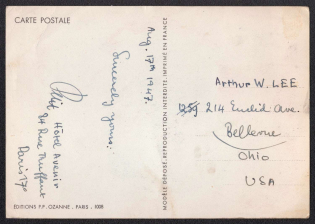 CARTE POSTALE
Aug. 17th 1947.
Sincerely yours.
Hôtel Avenir
84 Rue Truffaut
Paris 17e
ÉDITIONS P.P. OZANNE, PARIS - 1008
MODÈLE DÉPOSÉ. REPRODUCTION INTERDITE. IMPRIMÉ EN FRANCE
Arthur W. LEE
214 Euclid Ave.
Bellevue
Ohio
USA